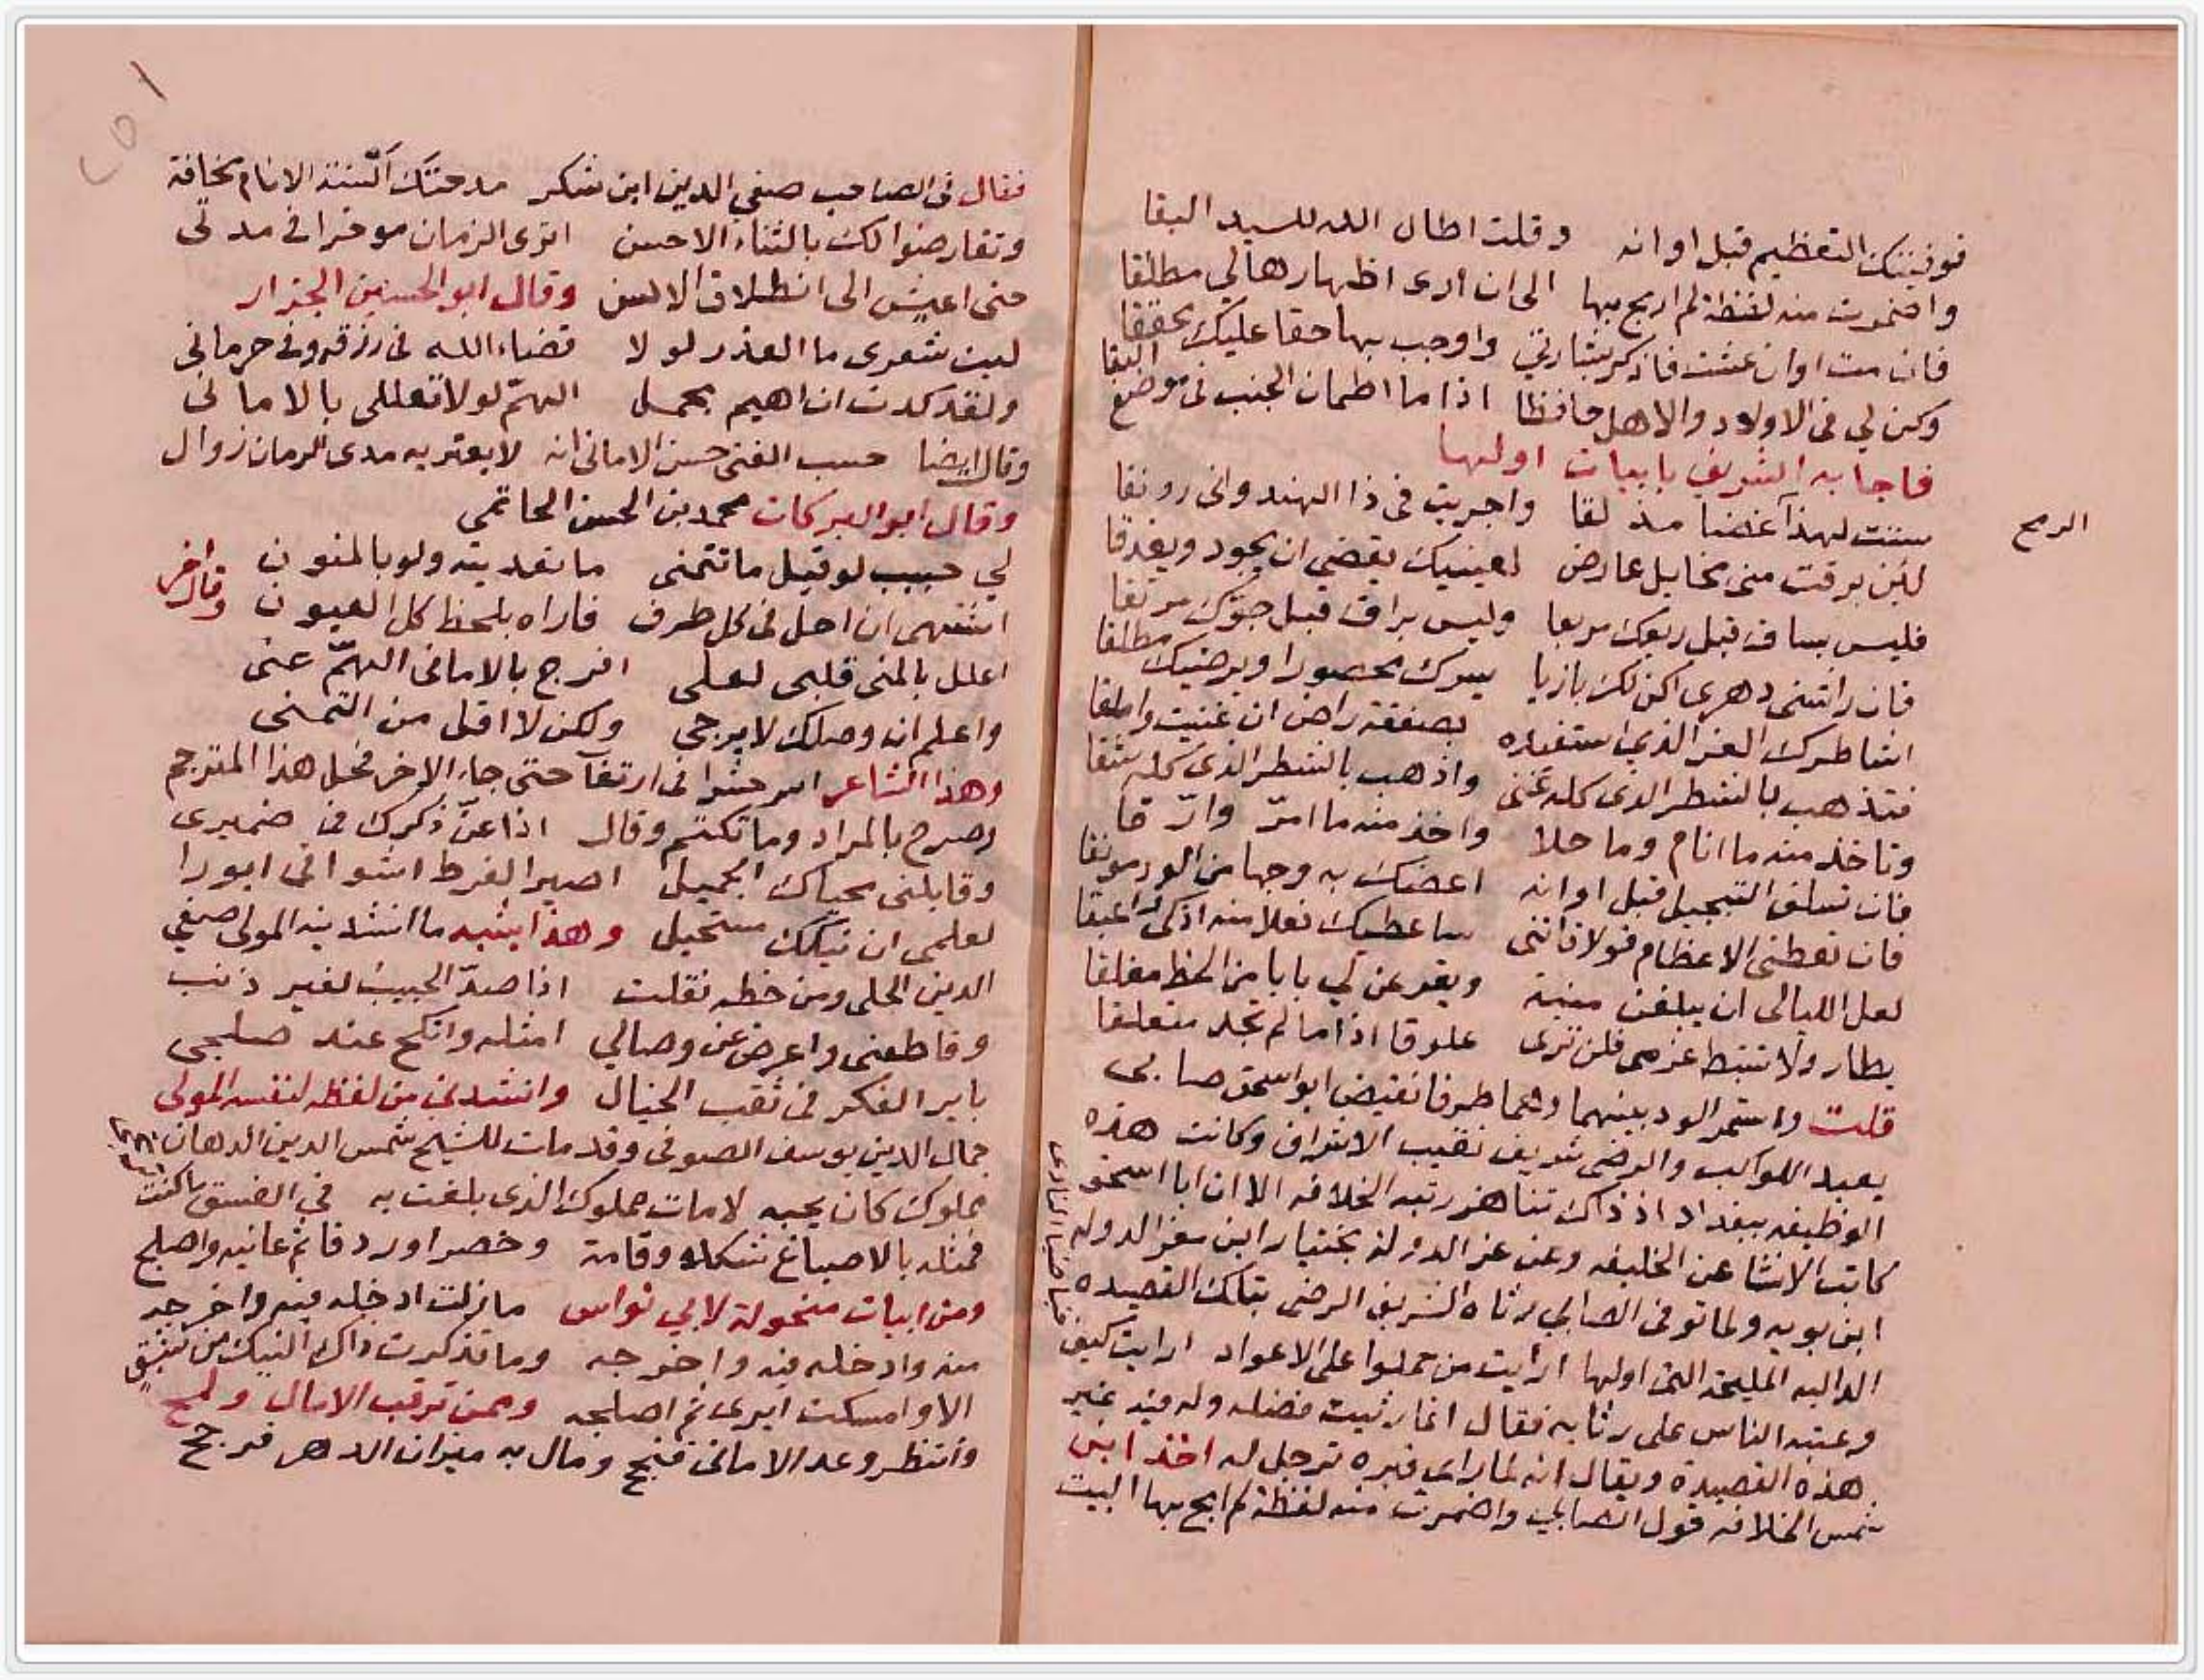 فوفيتك التعظيم قبل اوانه وقلت اطال الله للسيد البقا
واضمرت منه لفظة لم ابح بها الى ان ارى اظهارها لي مطلقا
فان مت او ان عشت فاذكر بشارتي واوجب بها حقا عليك محققا
وكن لي في الاولاد والاهل حافظا اذا ما اطمان الجنب في موضع البقا
فاجابه الشريف بابيات اولها
سننت لهذا غضبا مذلقا واجريت في ذا الهندواني رونقا
الرمح
لئن برقت مني مخايل عارض لعينيك يقضي ان يجود ويغدقا
فليس بساق قبل ربعك مربعا وليس براق قبل جوّك مرتقا
فان راشني دهري اكن لك بازيا يسرك محصورا ويرضيك مطلقا
اشاطرك العز الذي استفيده بصفقة راض ان غنيت واملقا
فتذهب بالشطر الذي كله غنى واذهب بالشطر الذي كله شقا
وتاخذ منه ما انام وما حلا واخذ منه ما امرّ وارّقا
فان تسلف التبجيل قبل اوانه اعضك به وجها من الود مونقا
فان تعطني الاعظام قولا فانني ساعطيك فعلا منه اذكى واعبقا
لعل الليالي ان يبلغن منية ويقرعن لي بابا من الحظ مغلقا
بطار ولا تنبط عزمى فلن ترى علوقا اذا ما لم تجد متعلقا
قلت واستمر الود بينهما وهما طرفا نقيض ابو اسحق صابى
يعبد الكواكب والرضى شريف نقيب الاشراف وكانت هذه
الوظيفه ببغداد اذ ذاك تناهز رتبه الخلافه الا ان ابا اسحق
كاتب الانشا عن الخليفه وعن عز الدولة بختيار ابن معز الدوله
ابن بويه ولما توفى الصابي رثاه الشريف الرضى بتلك القصيده
الداليه المليحة التى اولها ارأيت من حملوا على الاعواد ارايت كيف
خبا ضيا النادى
وعتبه الناس على رثايه فقال انما رثيت فضله وله فيه غير
هذه القصيدة ويقال انه لما راى قبره ترجل له اخذ ابن
شمس الخلافه قول الصابي واضمرت منه لفظة لم ابح بها البيت
٢٥١
فقال في الصاحب صفي الدين ابن شكر مدحتك السنة الانام مخافة
وتقارضوا لك بالثناء الاحسن اترى الزمان موخرا في مدتي
حتى اعيش الى انطلاق الالسن وقال ابو الحسين الجزار
ليت شعرى ما العذر لولا قضاء الله في رزقه وفي حرماني
ولقد كدت ان اهيم بحمل الهمّ لولا تعللي بالاماني
وقال ايضا حسب الفتى حسن الاماني انه لا يعتريه مدى الزمان زوال
وقال ابو البركات محمد بن الحسن الحاتمي
لي حبيب لو قيل ما تتمنى ما تعديته ولو بالمنون
اشتهي ان احل في كل طرف فاراه بلحظ كل العيون وقال اخر
اعلل بالمنى قلبى لعلى افرج بالاماني الهمّ عنى
واعلم ان وصلك لا يرجى ولكن لا اقل من التمنى
وهذا الشاعر في ارتقآ حتى جاء الاخر فحل هذا المترجم
وصرح بالمراد وما تكتم وقال اذا عنّ ذكرك في ضميرى
وقابلنى محياك الجميل اصير الفرط اشواقى ابورا
لعلمى ان نيكك مستحيل وهذا يشبه ما انشدنيه المولى صفي
الدين الحلى ومن خطه نقلت اذا صدّ الحبيب لغير ذنب
وقاطعنى واعرض عن وصالي امثله وانكح عند صلجى
باير الفكر في ثقب الخيال وانشدني من لفظه لنفسه المولى
جمال الدين يوسف الصوفى وقد مات للشيخ شمس الدين الدهان
مملوك كان يحبه لا مات مملوك الذى بلغت به في الفسق ما كنت
فمثله بالاصباغ شكلا وقامة وخصرا وردفا ثم عانيه واصلح
ومن ابيات منحولة لابي نواس ما زلت ادخله فيه واخرجه
منه وادخله فيه واخرجه وما تذكرت ذاك النيك من شبق
الا وامسكت ايرى ثم اصلجه وممن ترقب الامال ولمح
وانتظر وعد الامانى فنجح ومال به ميزان الدهر فرجح